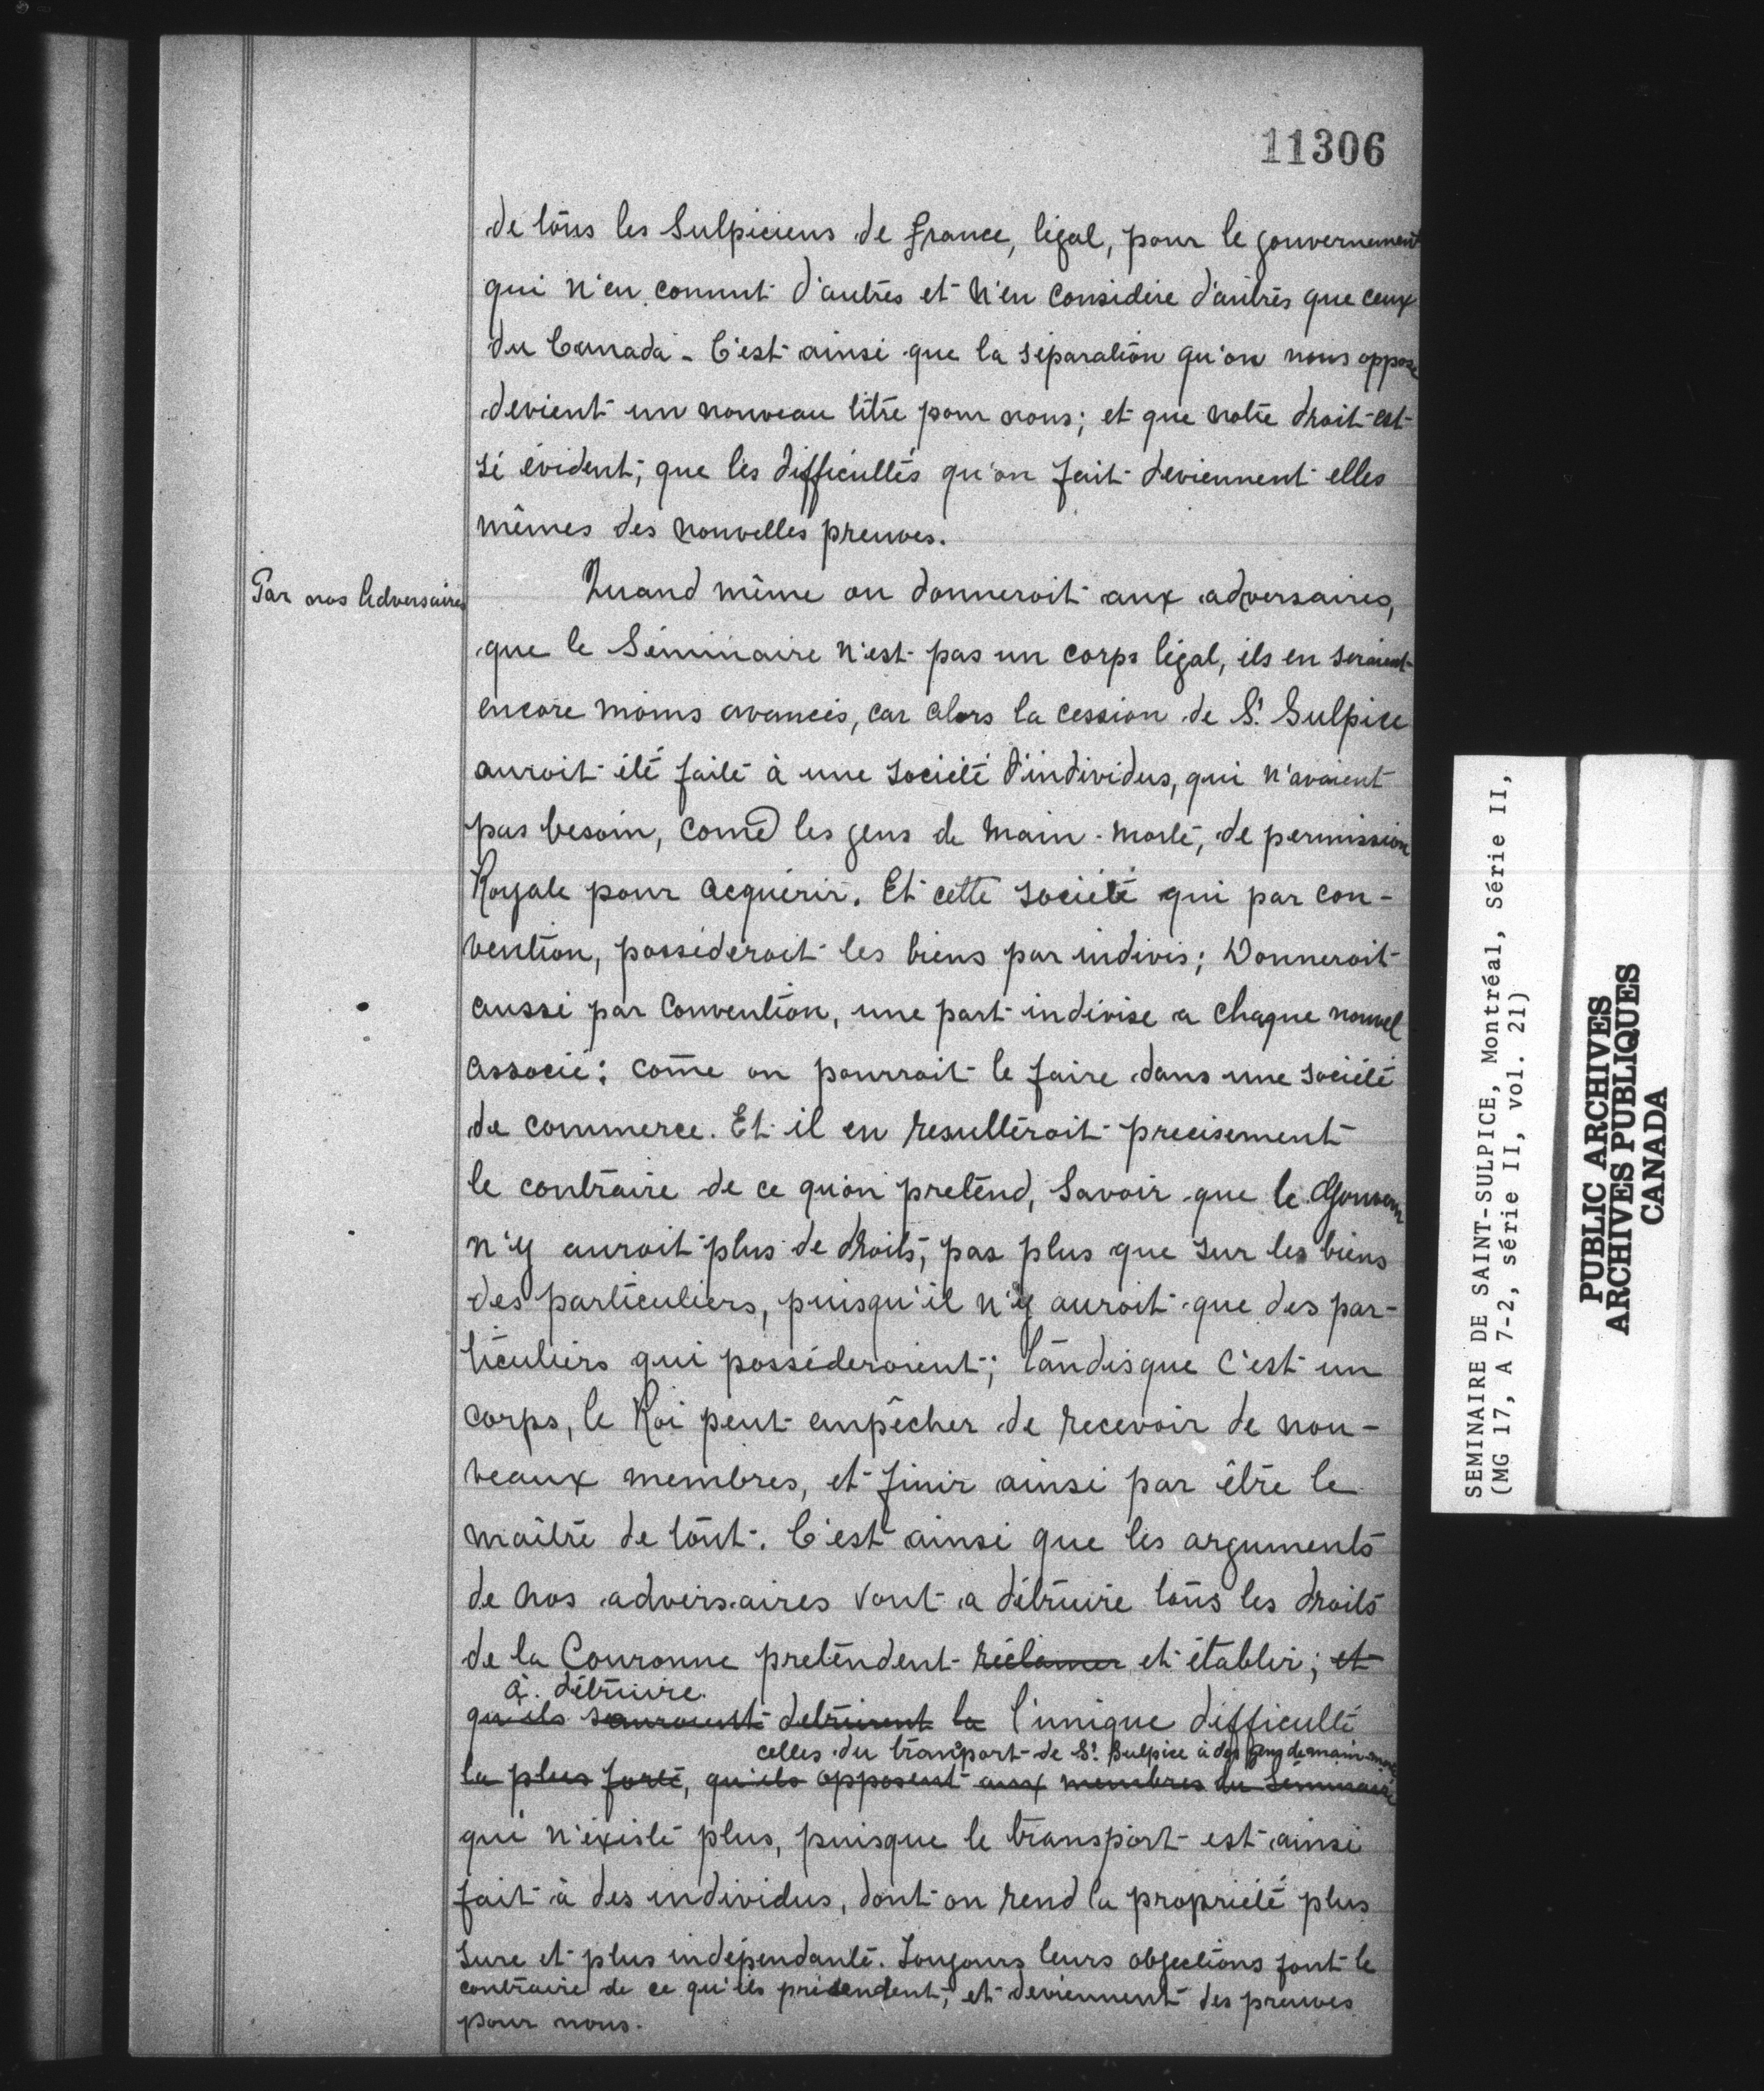 11306
de tous les Sulpiciens de france, légal, pour le gouvernement
qui n'en connut d'autres et n'en considère d'autres que ceux
du Canada - C'est ainsi que la séparation qu'on nous oppose
devient un nouveau titre pour nous; et que notre droit est
si évident, que les difficultés qu'on fait deviennent elles
mêmes des nouvelles preuves.
Par nos Adversaires
Quand même on donneroit aux adversaires,
que le Séminaire n'est pas un corps légal, ils en seraient
encore moins avancés, car alors la cession de St Sulpice
auroit été faite à une société d'individus, qui n'avaient
pas besoin, come les gens de main-morte, de permission
Royale pour acquérir. Et cette société qui par con-
vention, posséderoit les biens par indivis; Donneroit
aussi par convention, une part indivise a chaque nouvel
associé: come on pourroit le faire dans une société
de commerce. Et il en resulteroit precisement
le contraire de ce qu'on pretend, Savoir que le Gouvern
n'y auroit plus de droits, pas plus que sur les biens
des particuliers, puisqu'il n'y auroit que des par-
ticuliers qui posséderoient; tandisque c'est un
corps, le Roi peut empêcher de recevoir de nou-
veaux membres, et finir ainsi par être le
maître de tout. C'est ainsi que les arguments
de nos adversaires vont a détruire tous les droits
de la Couronne pretendent réclamer et établir; et
à détruire
qu'ils detruisent la l'unique difficulté
celles du transport de St Sulpice à des gens de main-morte
la plus forte, qu'ils opposent aux membres du Séminaire
qui n'existe plus, puisque le transport est ainsi
fait à des individus, dont on rend la propriété plus
sure et plus indépendante. Toujours leurs objections font le
contraire de ce qu'ils prétendent, et deviennent des preuves
pour nous.
SEMINAIRE DE SAINT-SULPICE, Montréal, Série II,
(MG 17, A 7-2, série II, vol. 21)
PUBLIC ARCHIVES
ARCHIVES PUBLIQUES
CANADA